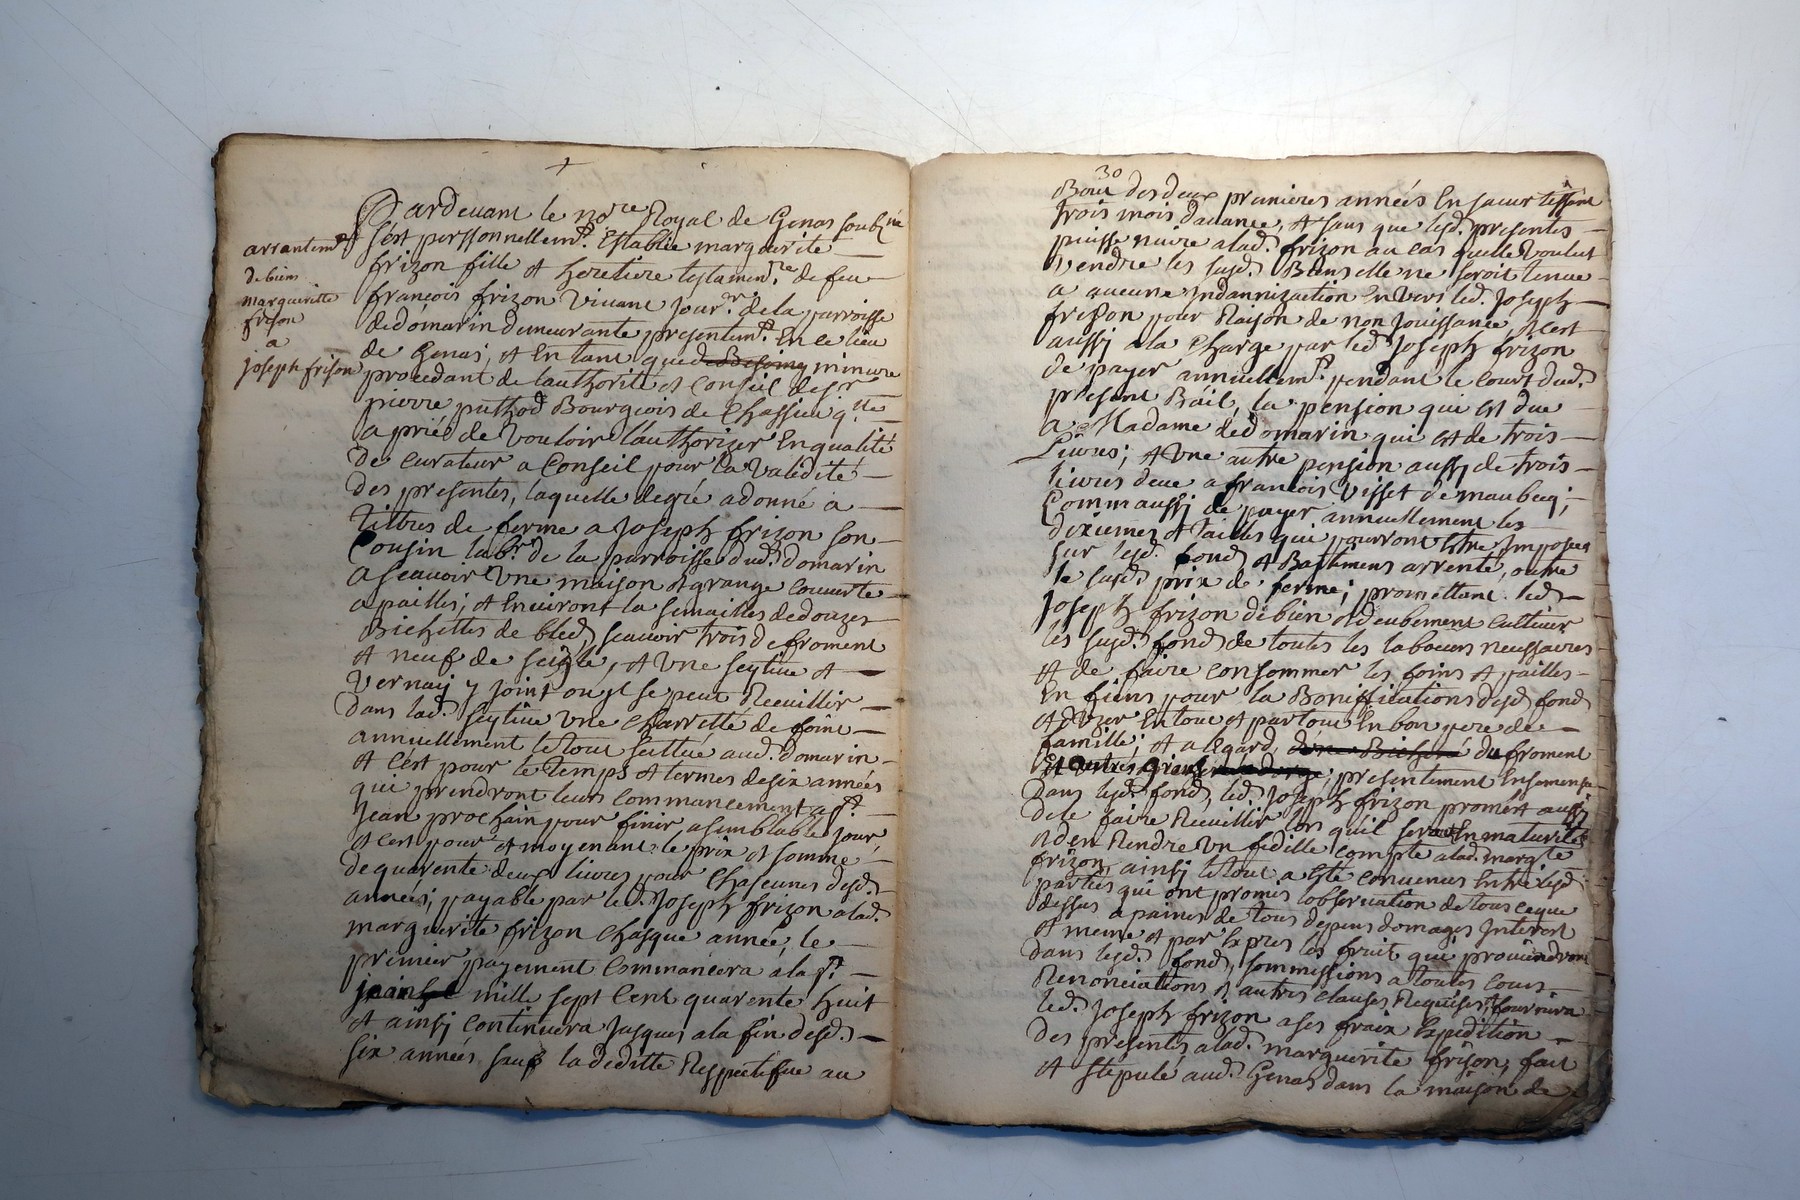 arrantemt
de bien
marguerite
frison
a
joseph frison
Pardevant le nore Royal de Genas soubne
sest perssonnellemt. Establie marguerite
frizon fille et heretiere testamenre. de feu
françois frizon Vivant Jourr. de la parroisse
dedomarin demeurante presentemt. En ce lieu
de Genas, et En tant que minure
procedant de lauthorité et Conseil de sr
pierre puthod Bourgeois de Chassieu qlle
a priée de vouloir l'authorizer En qualité
de curateur a Conseil pour la Validité
des presentes, laquelle de gré a donné a
tittres de ferme a Joseph frizon son
Cousin labr. de la parroisse dud. domarin
ascavoir Une maison et grange couverte
a pailles, et Environt la semailles de douzes
Bichettes de bled, scavoir trois de froment
et neuf de seigle, et Une seytive et
Vernay y joint ou jl se peut Recuillir
dans lad. seytive Une Charretté de foint
annuellement le tout scittué aud. domarin
et Cest pour le temps et termes de six années
qui prendront leurs commancement a st
Jean prochain pour finir a semblable jour,
et Cest pour et moyenant le prix et somme
de quarente deux livres pour Chascunes desd.
années, payable par led. Joseph frizon a lad.
marguerite frizon Chasque année, le
premier payement Commancera a la st.
jean mille sept Cent quarente huit
et ainsi Continuera Jusques a la fin desd.
six années sauf la deditte Respectifue au
30
Bout des deux premieres années En savertissant
trois mois davance, et sans que lesd. presentes
puisse nuire a lad. frizon au Cas quelle voulut
vendre les susd. Biens elle ne seroit tenue
a aucune Indannization Envers led. Joseph
frison pour Raison de non Jouissance, et Cest
aussi a la Charge par led. Joseph frizon
de payer annuellemt. pendant le Court dud.
present Bail, la pension qui est due
a Madame dedomarin qui est de trois
Livres; et Une autre pension aussi de trois
livres deue a francois Visset de maubec;
Comm aussi de payer annuellement les
dexiemes et tailles qui pourront estre Imposés
sur lesd. fonds et Bastimens arrenté, outre
le susd. prix de ferme; promettant led.
Joseph frizon de bien et deubement Cultiver
les susd. fonds de toutes les labœurs nessessaires
et de faire Consommer les foins et pailles
En fiens pour la Boniffications desd. fonds
et duzer En tout et par tout En bon pere de
famille; et a legard du froment
et autres grains presentement Ensemensés
dans lesd. fonds, led. Joseph frizon promet aussi
de le faire Recuillir lors qu'il sera En maturité
et den Rendre Un fidille compte a lad. margte
frizon, ainsi le tout a esté convenus Entre lesd.
parties qui ont promis lobservation de tous ce que
dessus a paines de tous depens domages Interest
et meme et par Expres les fruit qui proviendront
dans lesd. fonds, sommissions a toutes cours
Renonciations et autres Clauses Requises, et fournira
led. Joseph frizon a ses fraix Expedition
des presentes a lad. marguerite frison, fait
et stipulé aud. Genas dans la maison de